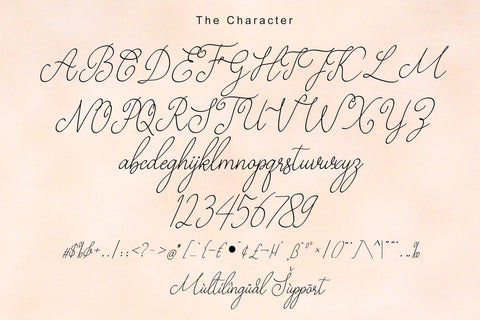 The Character
ABCDEFGHIJKLM
NOPQRSTUVWXYZ
abcdefghijklmnopqrstuvwxyz
123456789
Mùltilingüål Šüppört